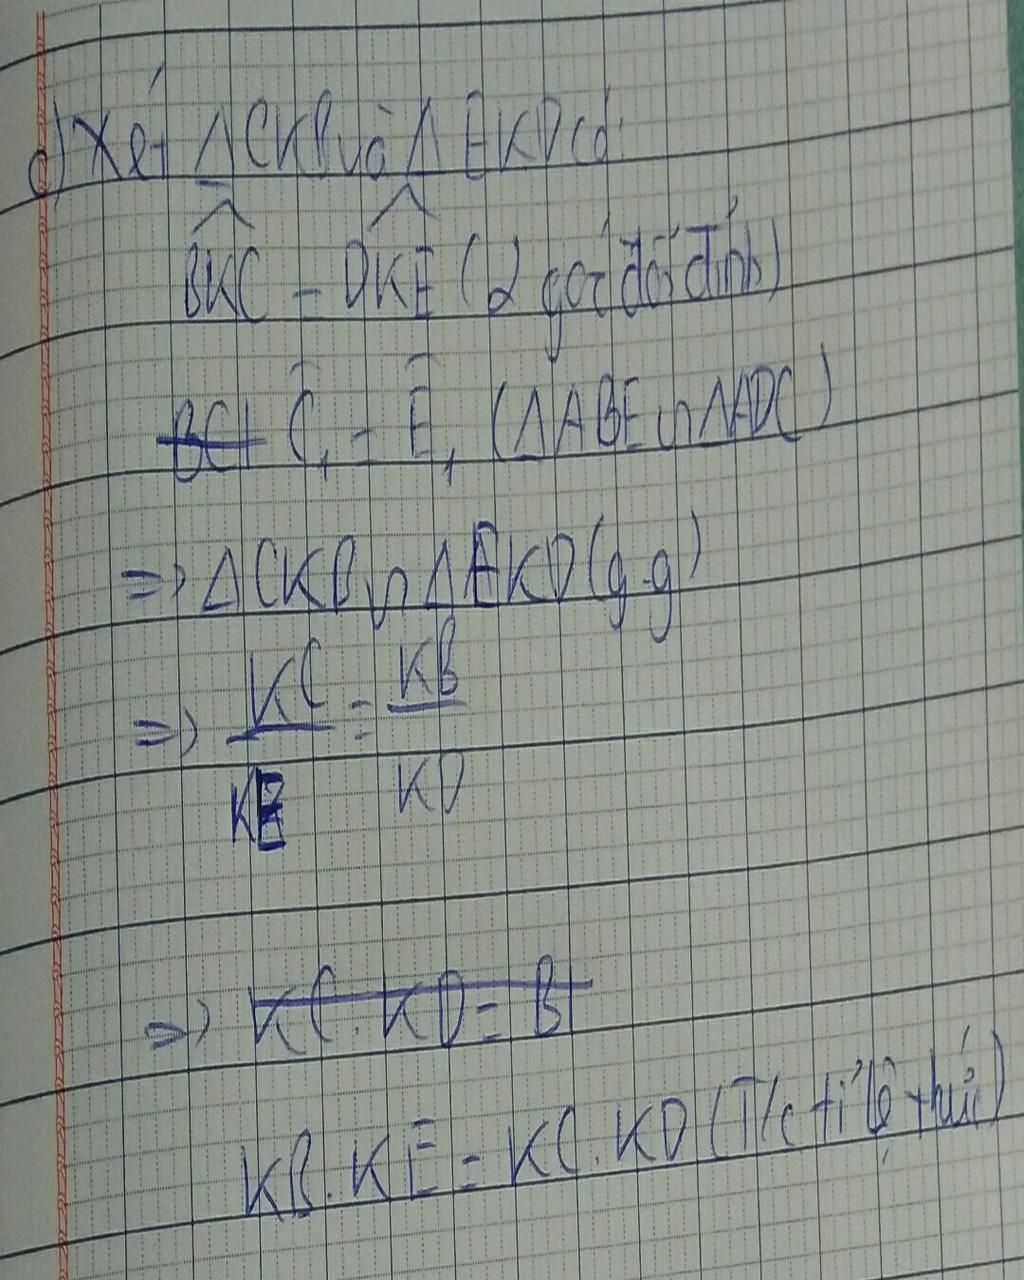 c) Xét ΔCKB và ΔEKD có:
BKC = DKE (2 góc đối đỉnh)
BC+ C₁ = E₁ (ΔABE ∽ ΔADC)
=> ΔCKB ∽ ΔEKD (g.g)
=> KC/KE = KB/KD
=> KC.KD = B
KB.KE = KC.KD (T/c tỉ lệ thức)